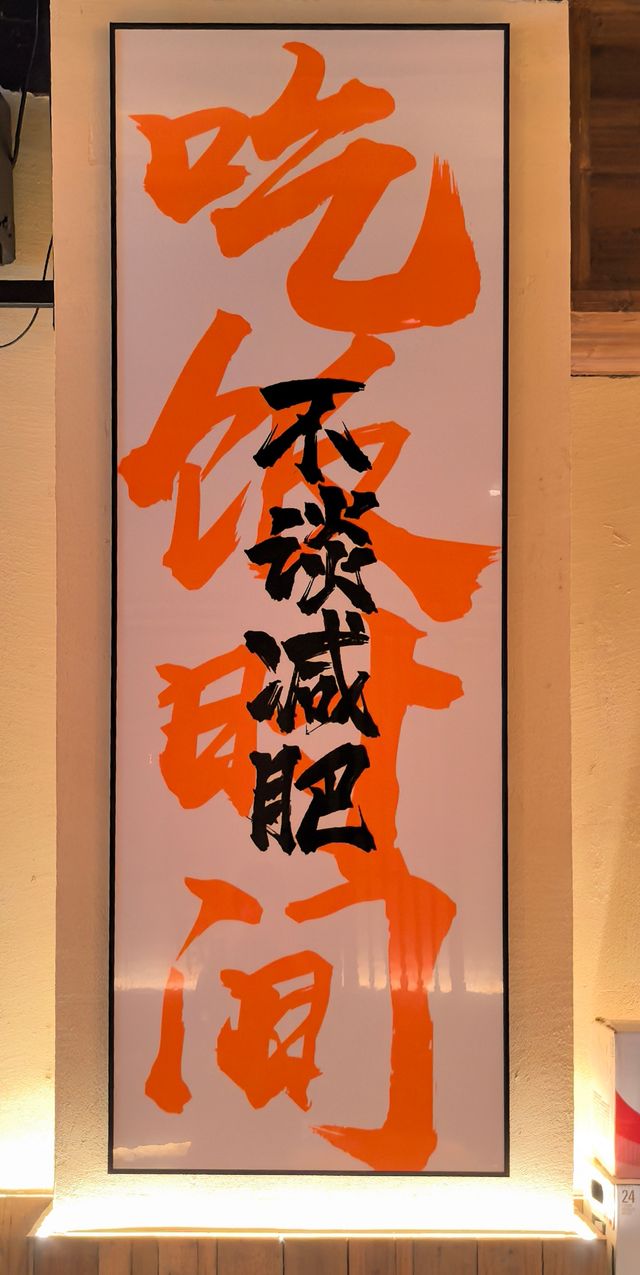 吃饭时间
不谈减肥
24